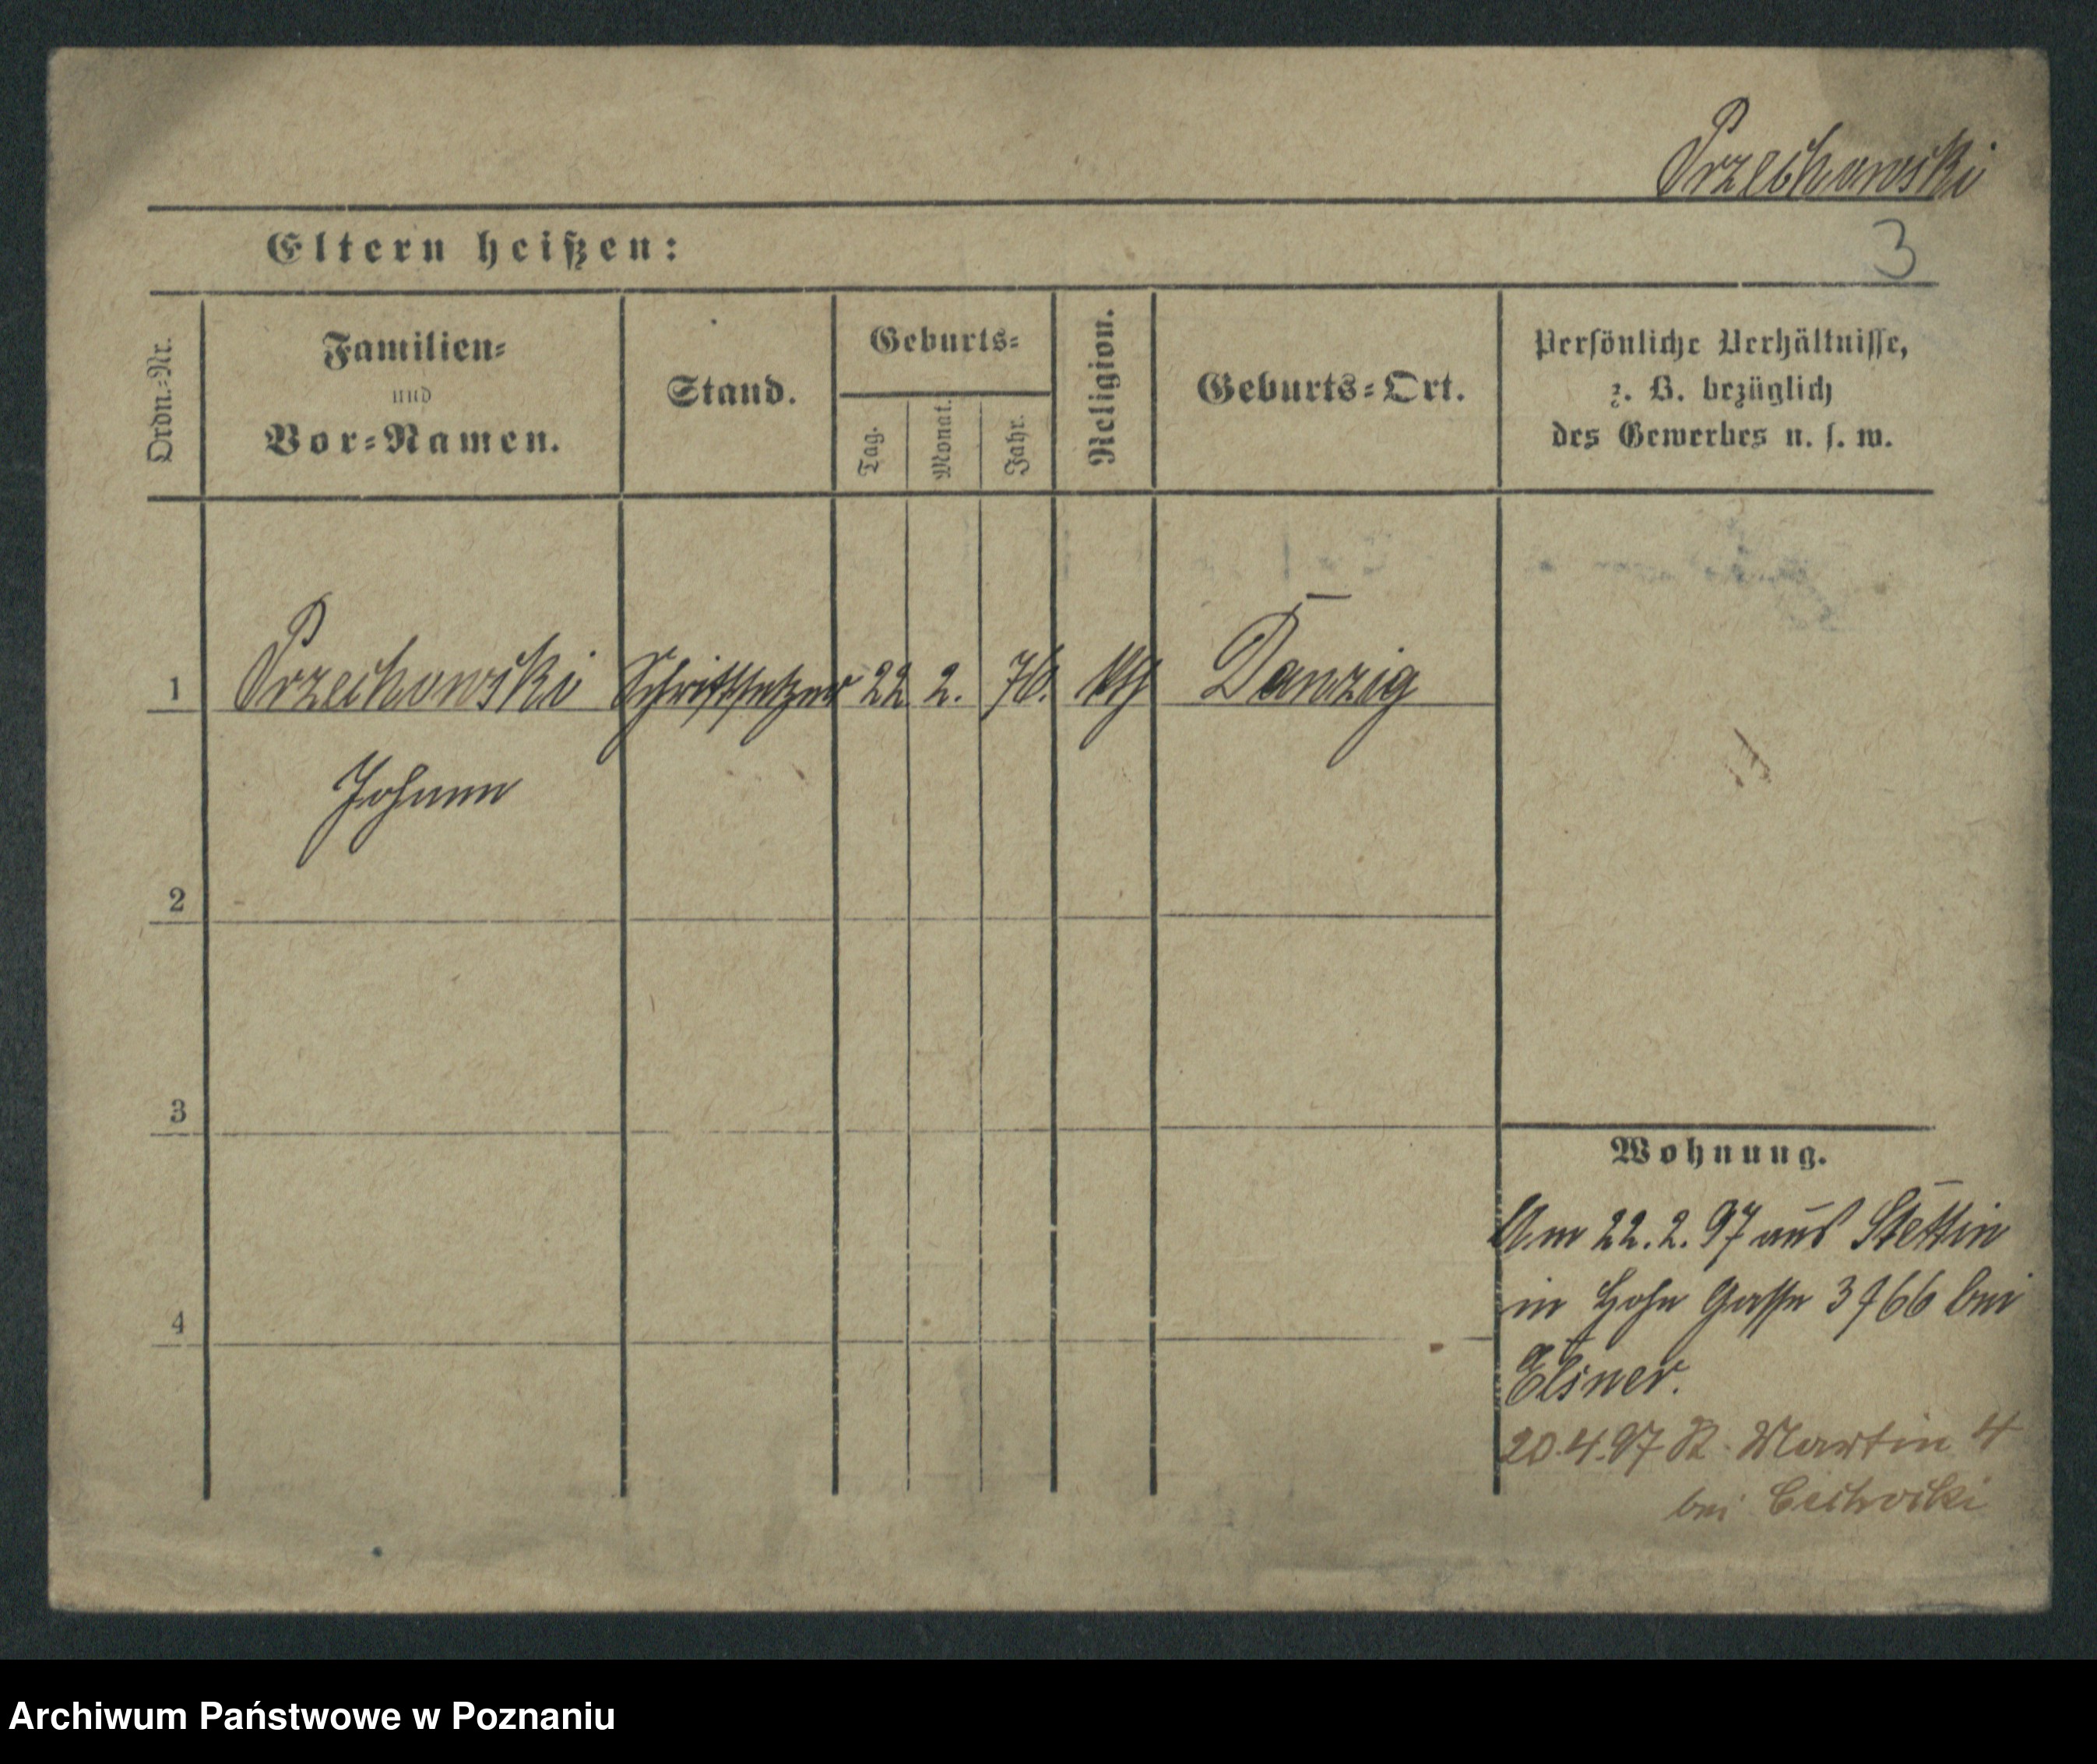 Przechowski
3
Eltern heißen:
Ordn.-Nr.
Familien-
und
Vor-Namen.
Stand.
Geburts-
Tag.
Monat.
Jahr.
Religion.
Geburts-Ort.
Persönliche Verhältnisse,
z. B. bezüglich
des Gewerbes u. s. w.
1 Przechowski Schriftsetzer 22 2. 76. kth Danzig
Johann
2
3
4
Wohnung.
Am 22.2.97 aus Stettin
in Hohe Gasse 3 bei
Elsner.
20.4.97 St. Martin 4
bei
Archiwum Państwowe w Poznaniu